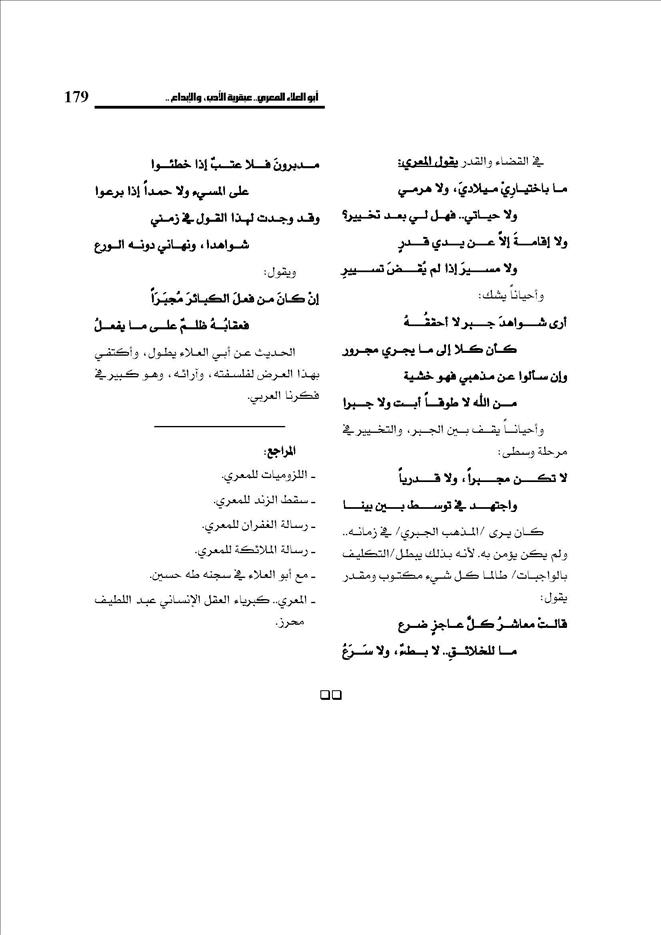 أبو العلاء المعري.. عبقرية الأدب، والإبداع.. 179
في القضاء والقدر يقول المعري:
ما باختياريْ ميلاديَ، ولا هرمي
ولا حياتي.. فهل لي بعد تخيير؟
ولا إقامةَ إلاَّ عن يدي قدرٍ
ولا مسيرَ إذا لم يُقضَ تسييرِ
وأحياناً يشك:
أرى شواهدَ جبر لا أحققُهُ
كأن كلا إلى ما يجري مجرور
وإن سألوا عن مذهبي فهو خشية
من الله لا طوقاً أبت ولا جبرا
وأحياناً يقف بين الجبر، والتخيير في
مرحلة وسطى:
لا تكن مجبراً، ولا قدرياً
واجتهد في توسط بين بينا
كان يرى /المذهب الجبري/ في زمانه..
ولم يكن يؤمن به. لأنه بذلك يبطل/التكليف
بالواجبات/ طالما كل شيء مكتوب ومقدر
يقول:
قالتْ معاشرُ كلَّ عاجزٍ ضرع
ما للخلائقِ.. لا بطءٌ، ولا سَرَعُ
مدبرونَ فلا عتبٌ إذا خطئوا
على المسيء ولا حمداً إذا برعوا
وقد وجدت لهذا القول في زمني
شواهدا، ونهاني دونه الورع
ويقول:
إنْ كانَ من فعلَ الكبائرَ مُجبَرَاً
فعقابُهُ ظلمٌ على ما يفعلُ
الحديث عن أبي العلاء يطول، وأكتفي
بهذا العرض لفلسفته، وآرائه، وهو كبير في
فكرنا العربي.
المراجع:
ـ اللزوميات للمعري.
ـ سقط الزند للمعري.
ـ رسالة الغفران للمعري.
ـ رسالة الملائكة للمعري.
ـ مع أبو العلاء في سجنه طه حسين.
ـ المعري.. كبرياء العقل الإنساني عبد اللطيف
محرز.